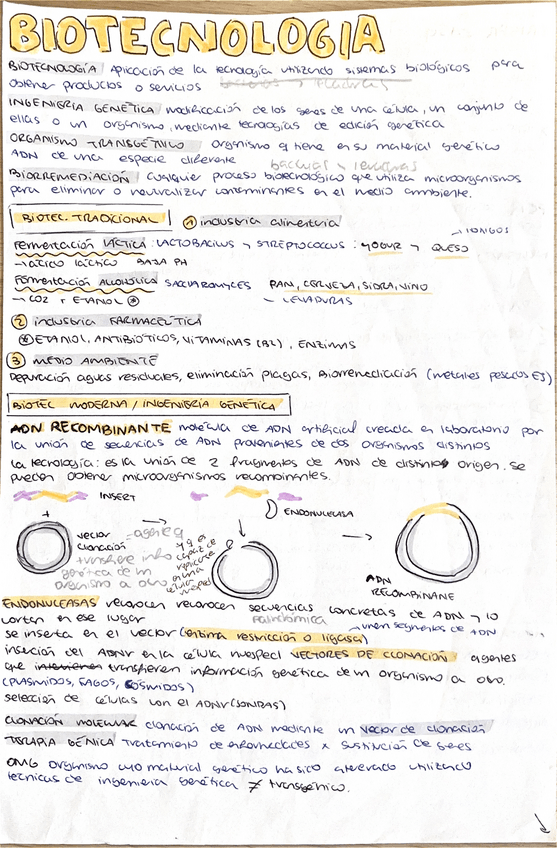 BIOTECNOLOGIA
BIOTECNOLOGÍA Aplicación de la tecnología utilizando sistemas biológicos para
obtener productos o servicios
INGENIERIA GENÉTICA modificación de los genes de una célula, un conjunto de
ellas o un organismo, mediante tecnologías de edición genética
ORGANISMO TRANSGÉNICO organismo q tiene en su material genético
ADN de una especie diferente
BIORREMEDIACIÓN cualquier proceso biotecnológico que utiliza microorganismos
para eliminar o neutralizar contaminantes en el medio ambiente.
BIOTEC. TRADICIONAL 1 industria alimentaria
Fermentación láctica: LACTOBACILLUS y STREPTOCOCCUS: YOGUR y QUESO → HONGOS
→ ácido láctico BAJA PH
Fermentación ALCOHÓLICA SACCHAROMYCES PAN, CERVEZA, SIDRA, VINO
→ CO2 + ETANOL ⊛ LEVADURAS
2 industria FARMACEÚTICA
⊛ ETANOL, ANTIBIÓTICOS, VITAMINAS (B2), ENZIMAS
3 MEDIO AMBIENTE
Depuración aguas residuales, eliminación plagas, Biorremediación (metales pesados EJ)
BIOTEC MODERNA / INGENIERÍA GENÉTICA
ADN RECOMBINANTE molécula de ADN artificial creada en laboratorio por
la unión de secuencias de ADN provenientes de dos organismos distintos
La tecnología: es la unión de 2 fragmentos de ADN de distinto origen. se
pueden obtener microorganismos recombinantes.
INSERT
ENDONUCLEASA
+
vector clonación = agente q
transfiere info
genética de un
organismo a otro
y q es
capaz de
replicarse
en una
célula
huésped
ADN
RECOMBINANE
ENDONUCLEASAS reconocen reconocen secuencias concretas de ADN y lo
cortan en ese lugar palindrómica
se inserta en el vector (enzima restricción o ligasa) → unen segmentos de ADN
inserción del ADNr en la célula huésped VECTORES DE CLONACIÓN agentes
que transfieren información genética de un organismo a otro.
(PLASMIDOS, FAGOS, CÓSMIDOS)
selección de células con el ADNr (SONDAS)
CLONACIÓN MOLECULAR clonación de ADN mediante un vector de clonación
TERAPIA GÉNICA Tratamiento de enfermedades x sustitución de genes
OMG organismo cuyo material genético ha sido alterado utilizando
técnicas de ingeniería genética ≠ transgénico.